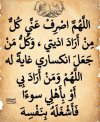 اللَّهُمَّ اصْرِفْ عَنِّي كُلَّ
مَنْ أَرَادَ اذيتي ، وَكُلَّ مَنْ
جَعَلَ انكساري غَايةً له
اللَّهُمَّ وَمَنْ أَرَادَ بِي
أَوْ بِأَهْلِي سوءًا
فَأَشْغِلْهُ بِنَفْسِهِ